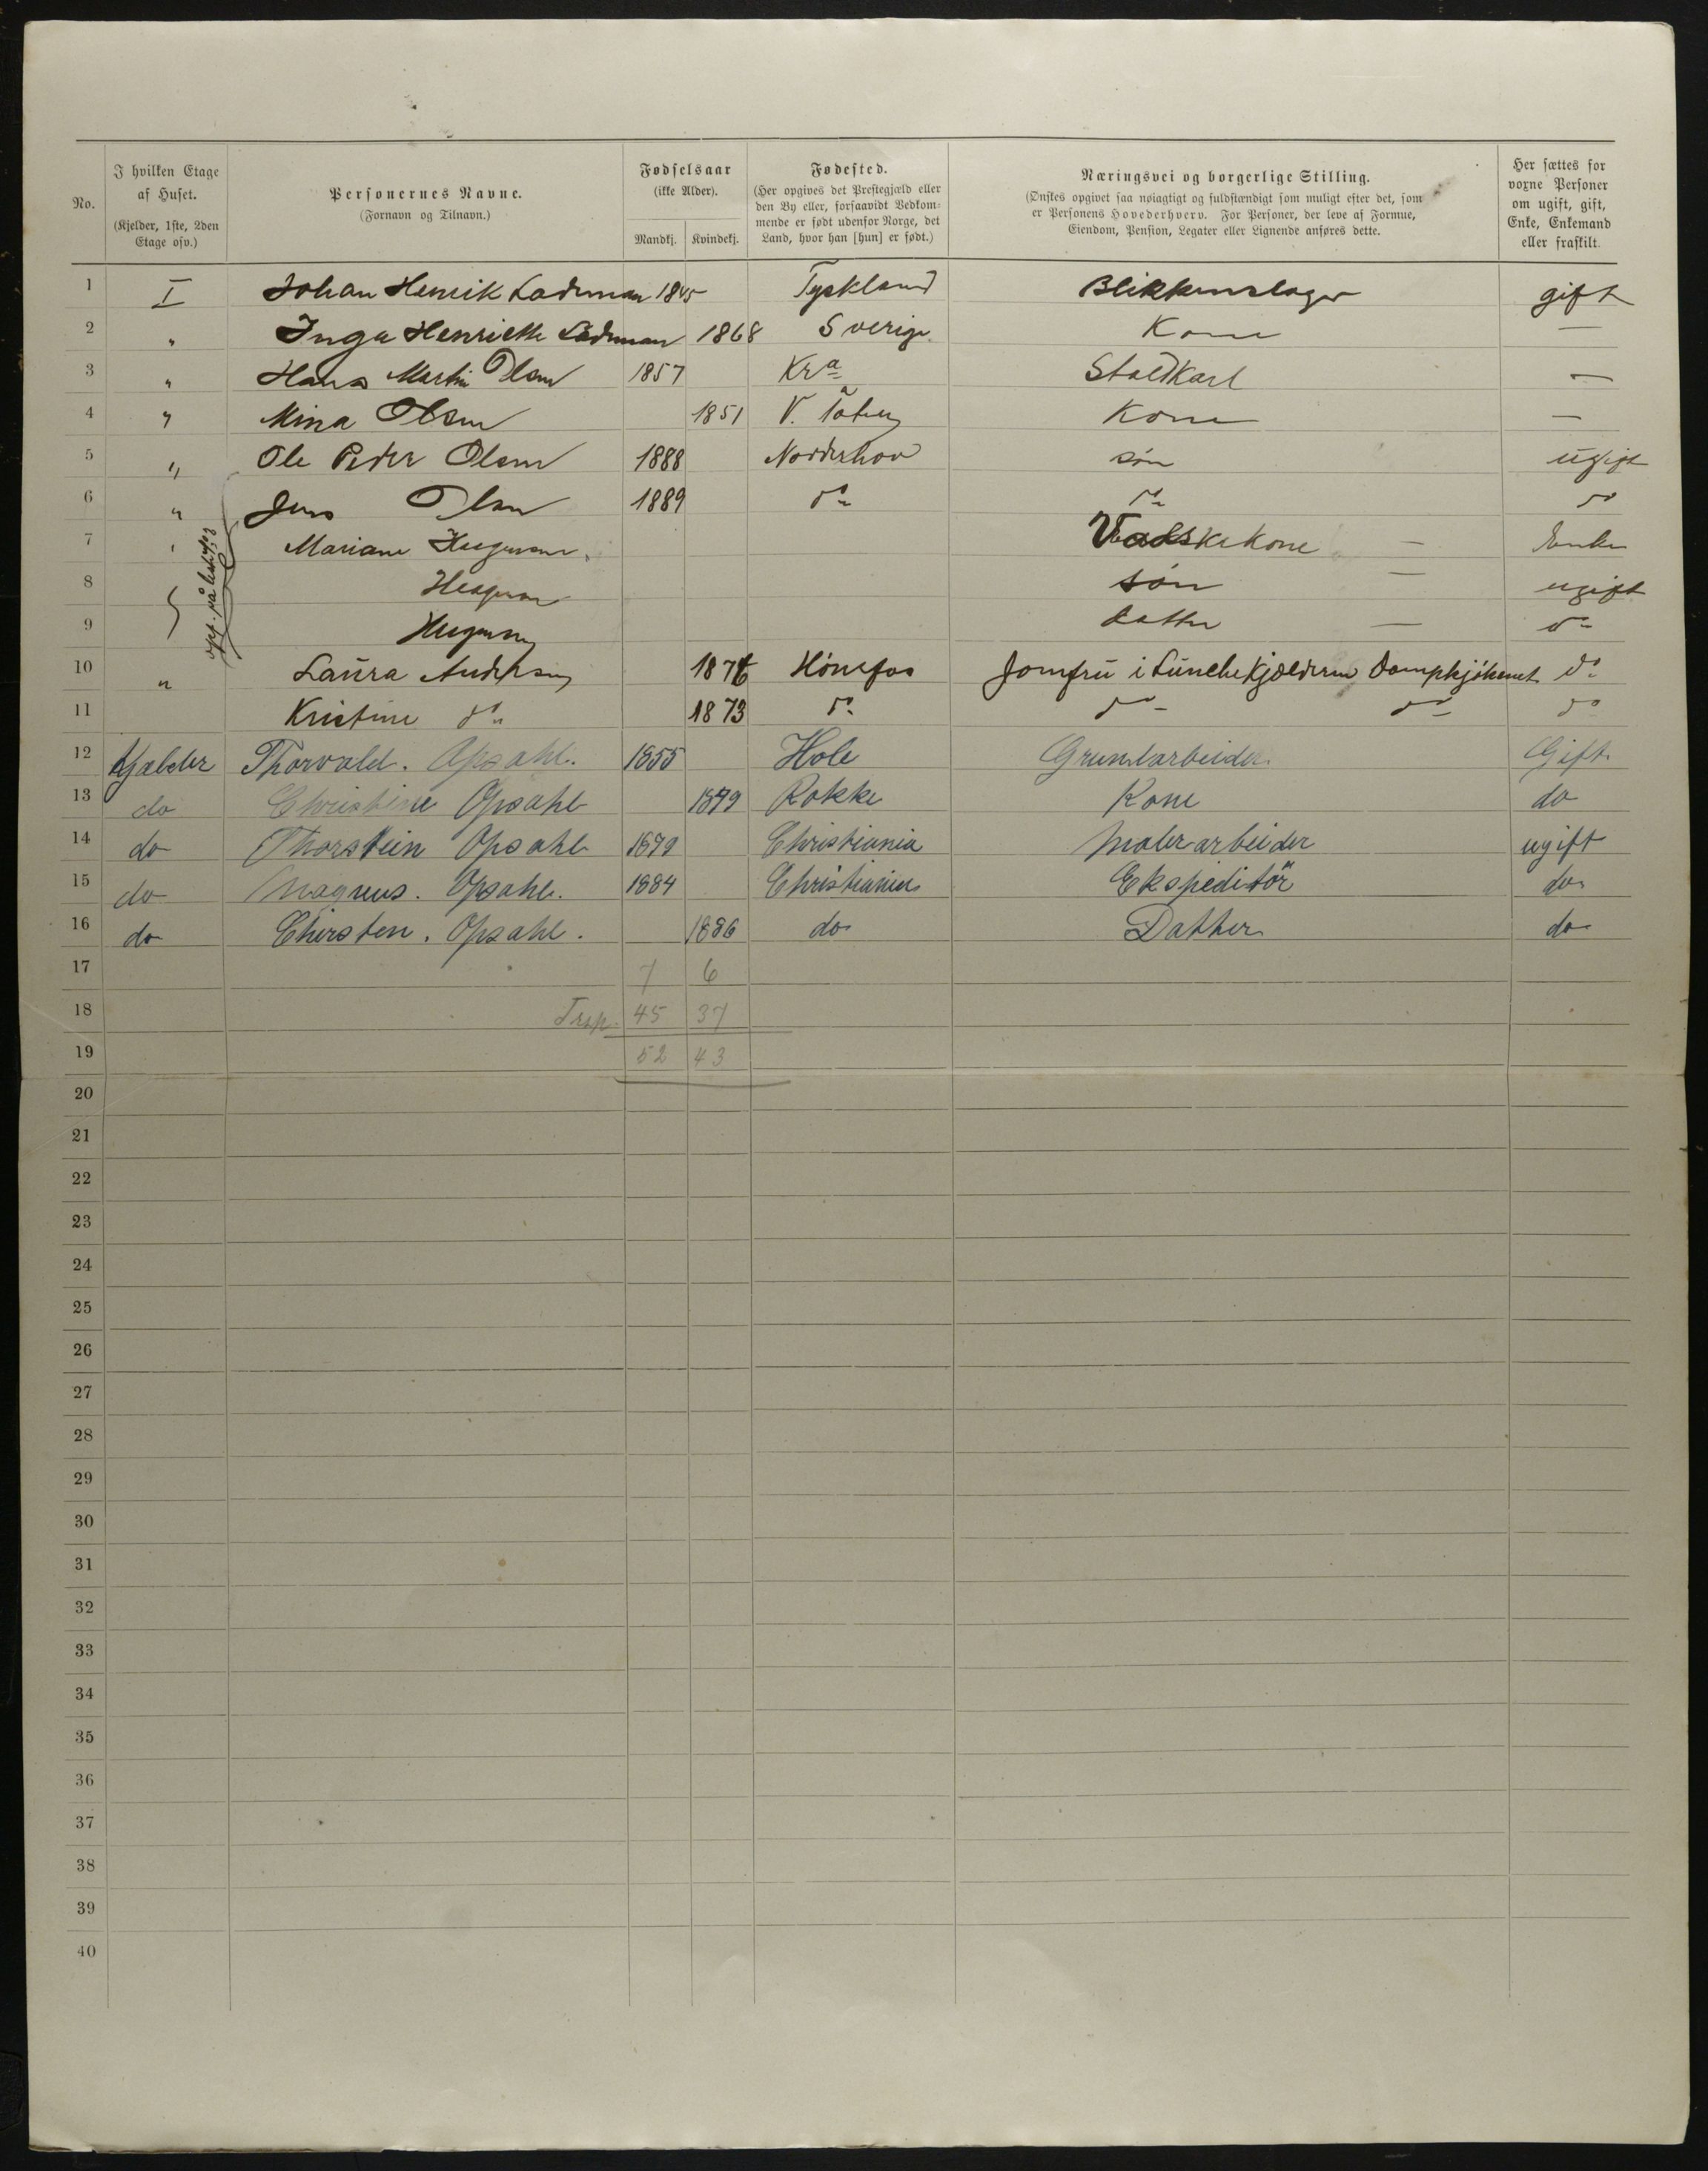 No.
I hvilken Etage af Huset. (Kjelder, 1ste, 2den Etage osv.)
Personernes Navne. (Fornavn og Tilnavn.)
Fødselsaar (ikke Alder).
Mandkj. Kvindekj.
Fødested. (Her opgives det Prestegjæld eller den By eller, forsaavidt Vedkommende er født udenfor Norge, det Land, hvor han [hun] er født.)
Næringsvei og borgerlige Stilling. (Ønskes opgivet saa nøiagtigt og fuldstændigt som muligt efter det, som er Personens Hovederhverv. For Personer, der leve af Formue, Eiendom, Pension, Legater eller Lignende anføres dette.
Her sættes for voxne Personer om ugift, gift, Enke, Enkemand eller fraskilt.
1 I Johan Henrik Lademan 1845 Tyskland Blikkenslager gift
2 " Inga Henriette Lademan 1868 Sverige Kone —
3 " Hans Martin Olsen 1857 Kra Staldkarl —
4 " Mina Olsen 1851 V. Toten Kone —
5 " Ole Peder Olsen 1888 Norderhov søn ugift
6 " Jens Olsen 1889 do do do
7 " Mariane Vadskekone — Enke
8 søn — ugift
9 datter — do
10 " Laura Andersen 1874 Hönefos Jomfru i Lunchekjælderen Dampkjökenet do
11 Kristine do 1873 do do do do
12 Kjælder Thorvald. Opsahl. 1855 Hole Grundarbeider Gift
13 do Christine Opsahl 1849 Rokke Kone do
14 do Thorstein Opsahl 1879 Christiania Malerarbeider ugift
15 do Magnus. Opsahl. 1884 Christiania Ekspeditör do
16 do Chirsten. Opsahl. 1886 do Datter do
17 7 6
18 Trsp. 45 37
19 52 43
20
21
22
23
24
25
26
27
28
29
30
31
32
33
34
35
36
37
38
39
40